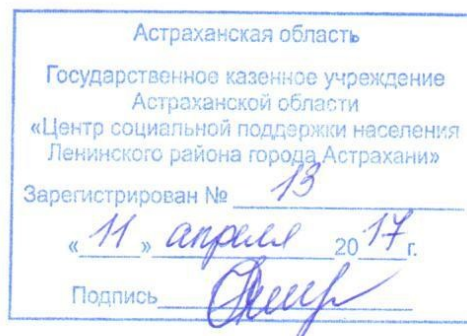 Астраханская область
Государственное казенное учреждение
Астраханской области
«Центр социальной поддержки населения
Ленинского района города Астрахани»
Зарегистрирован № 13
« 11 » апреля 2017 г.
Подпись